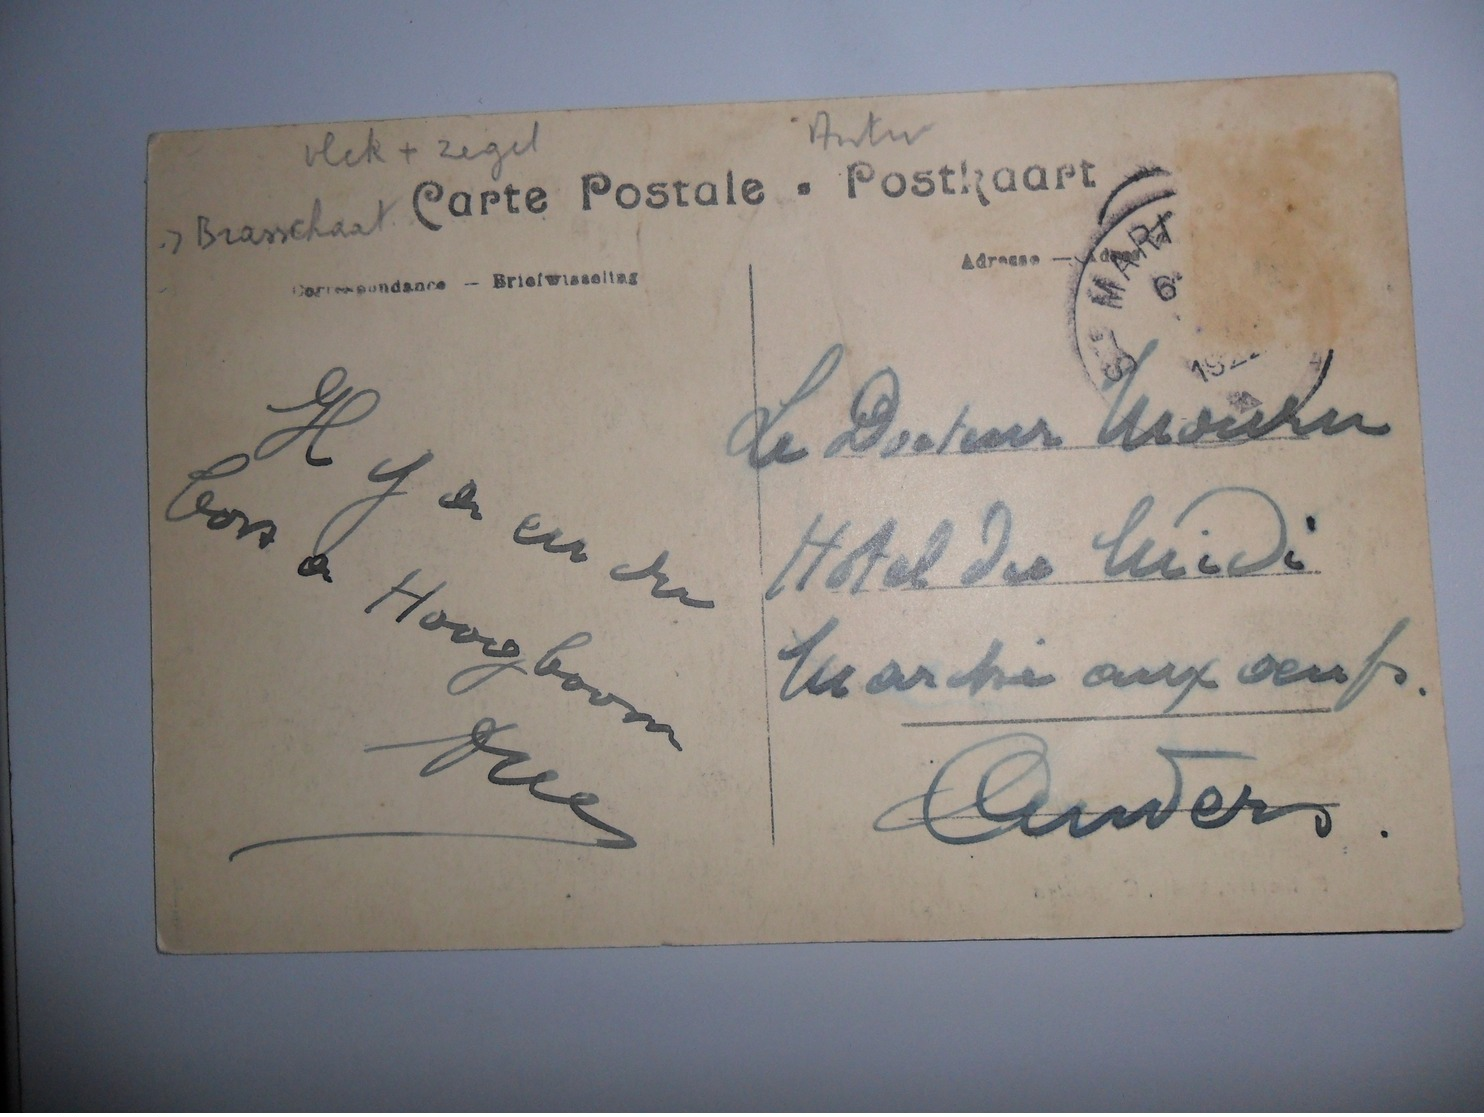 vlek + zegel
Antw
Carte Postale ▪ Postkaart
-> Brasschaat
Correspondance — Briefwisseling
Adresse — Adres
Sᵗ MARI
6
1922
Il y a eu du
bon a Hoogboom
Le Docteur
Hotel du Midi
Marché aux oeufs.
Anvers.